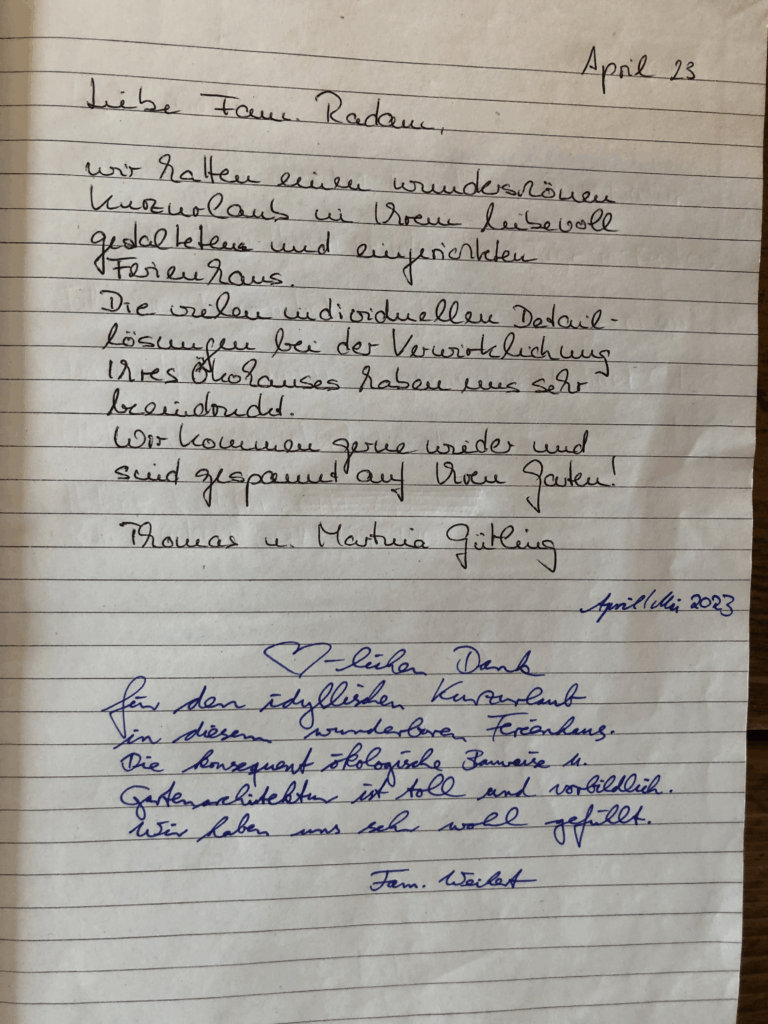 April 23
Liebe Fam. Radam,
wir hatten einen wunderschönen
Kurzurlaub in Ihrem liebevoll
gestalteten und eingerichteten
Ferienhaus.
Die vielen individuellen Detail-
lösungen bei der Verwirklichung
Ihres Ökohauses haben uns sehr
beeindruckt.
Wir kommen gerne wieder und
sind gespannt auf Ihren Garten!
Thomas u. Martina Gütling
April/Mai 2023
♡-lichen Dank
für den idyllischen Kurzurlaub
in diesem wunderbaren Ferienhaus.
Die konsequent ökologische Bauweise u.
Gartenarchitektur ist toll und vorbildlich.
Wir haben uns sehr wohl gefühlt.
Fam.